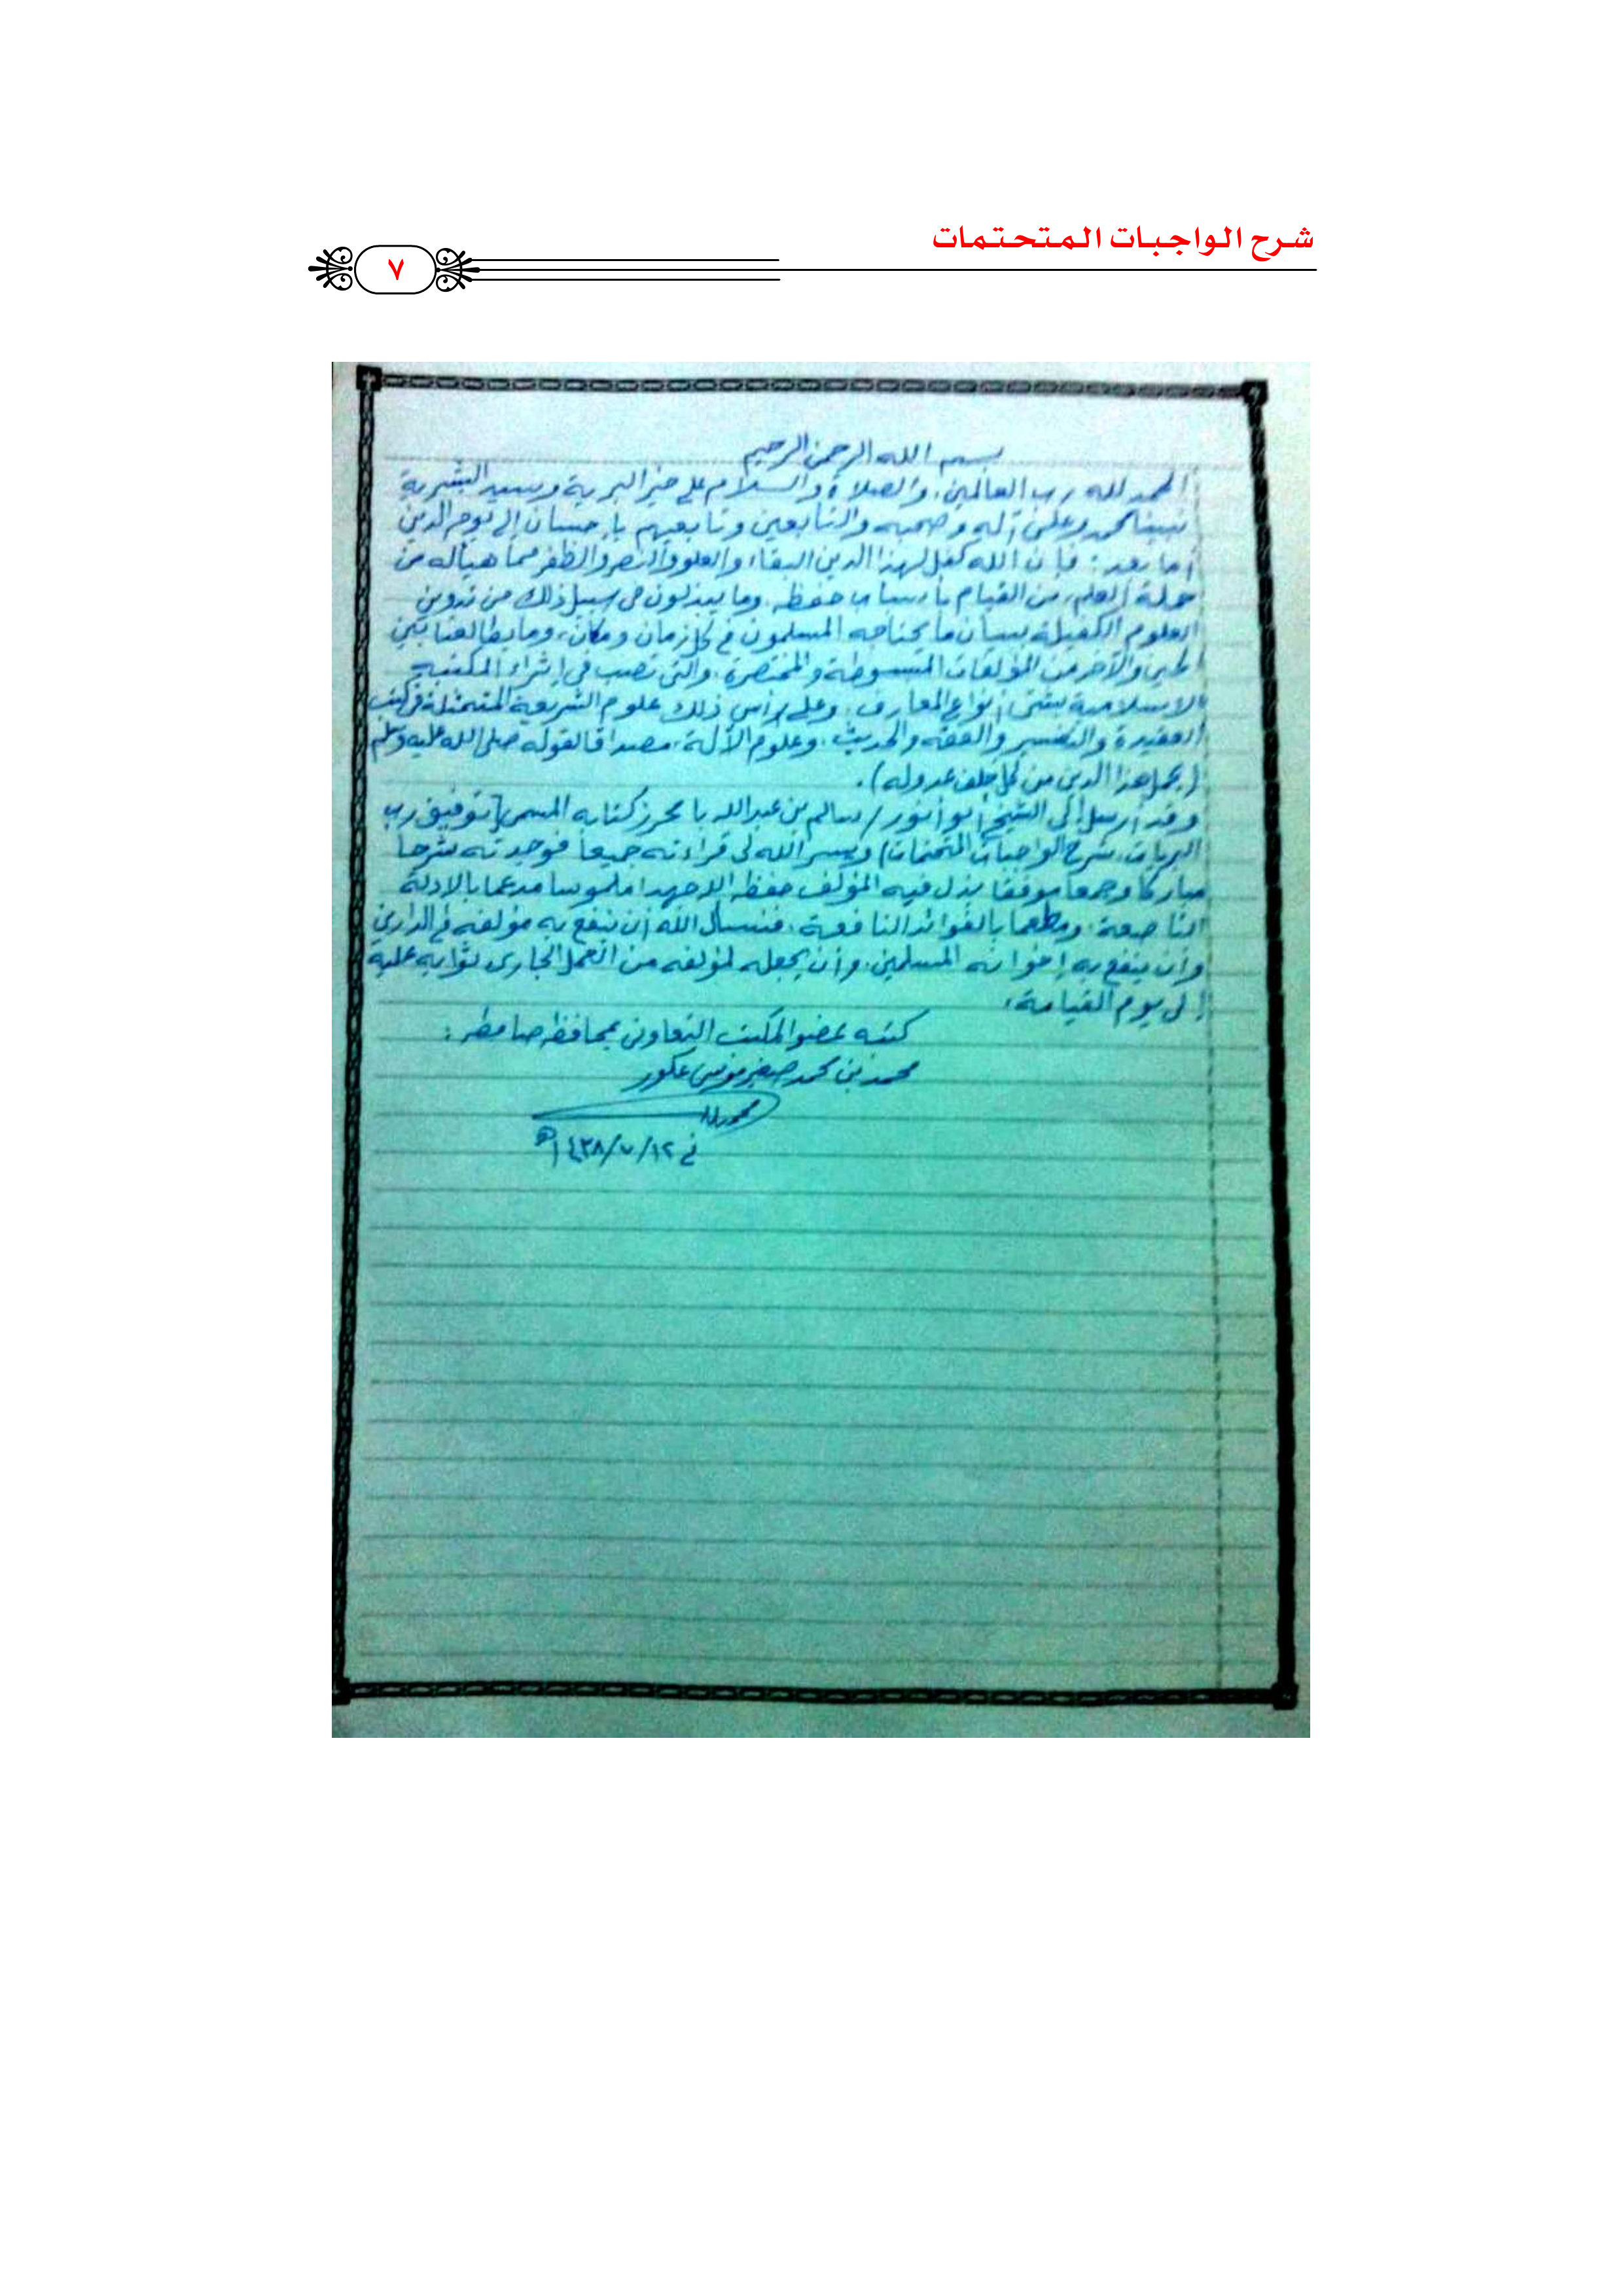 شرح الواجبات المتحتمات
٧
بسم الله الرحمن الرحيم
الحمد لله رب العالمين، والصلاة والسلام على خير البرية وسيد البشرية
نبينا محمد وعلى آله وصحبه والتابعين وتابعيهم بإحسان إلى يوم الدين
أما بعد: فإن الله كفل لهذا الدين البقاء والعلو والنصر والظفر مما هيأ له من
حملة العلم، من القيام بأسباب حفظه، وما يبذلون في سبيل ذلك من تدوين
العلوم الكفيلة ببيان ما يحتاجه المسلمون في كل زمان ومكان، وما يطالعنا بين
الحين والآخر من المؤلفات المبسوطة والمختصرة، والتي تصب في إثراء المكتبة
الإسلامية بشتى أنواع المعارف، وعلى رأس ذلك علوم الشريعة المتمثلة في كتب
العقيدة والتفسير والفقه والحديث، وعلوم الآلة، مصداقا لقوله صلى الله عليه وسلم
(يحمل هذا الدين من كل خلف عدوله).
وقد أرسل إلي الشيخ أبو أنور / سالم بن عبد الله با محرز كتابه المسمى [توفيق رب
البريات، بشرح الواجبات المتحتمات) ويسر الله لي قراءته جميعا فوجدته شرحا
مباركا وجمعا موفقا بذل فيه المؤلف حفظه الله جهدا ملموسا مدعما بالأدلة
الناصعة، ومطعما بالفوائد النافعة، فنسأل الله أن ينفع به مؤلفه في الدارين
وأن ينفع به إخوانه المسلمين، وأن يجعله لمؤلفه من العمل الجاري ثوابه عليه
إلى يوم القيامة،
كتبه عضو المكتب التعاوني بمحافظة صامطة:
محمد بن محمد صغير موسى عكور
في ١٢/٧/١٤٣٨هـ